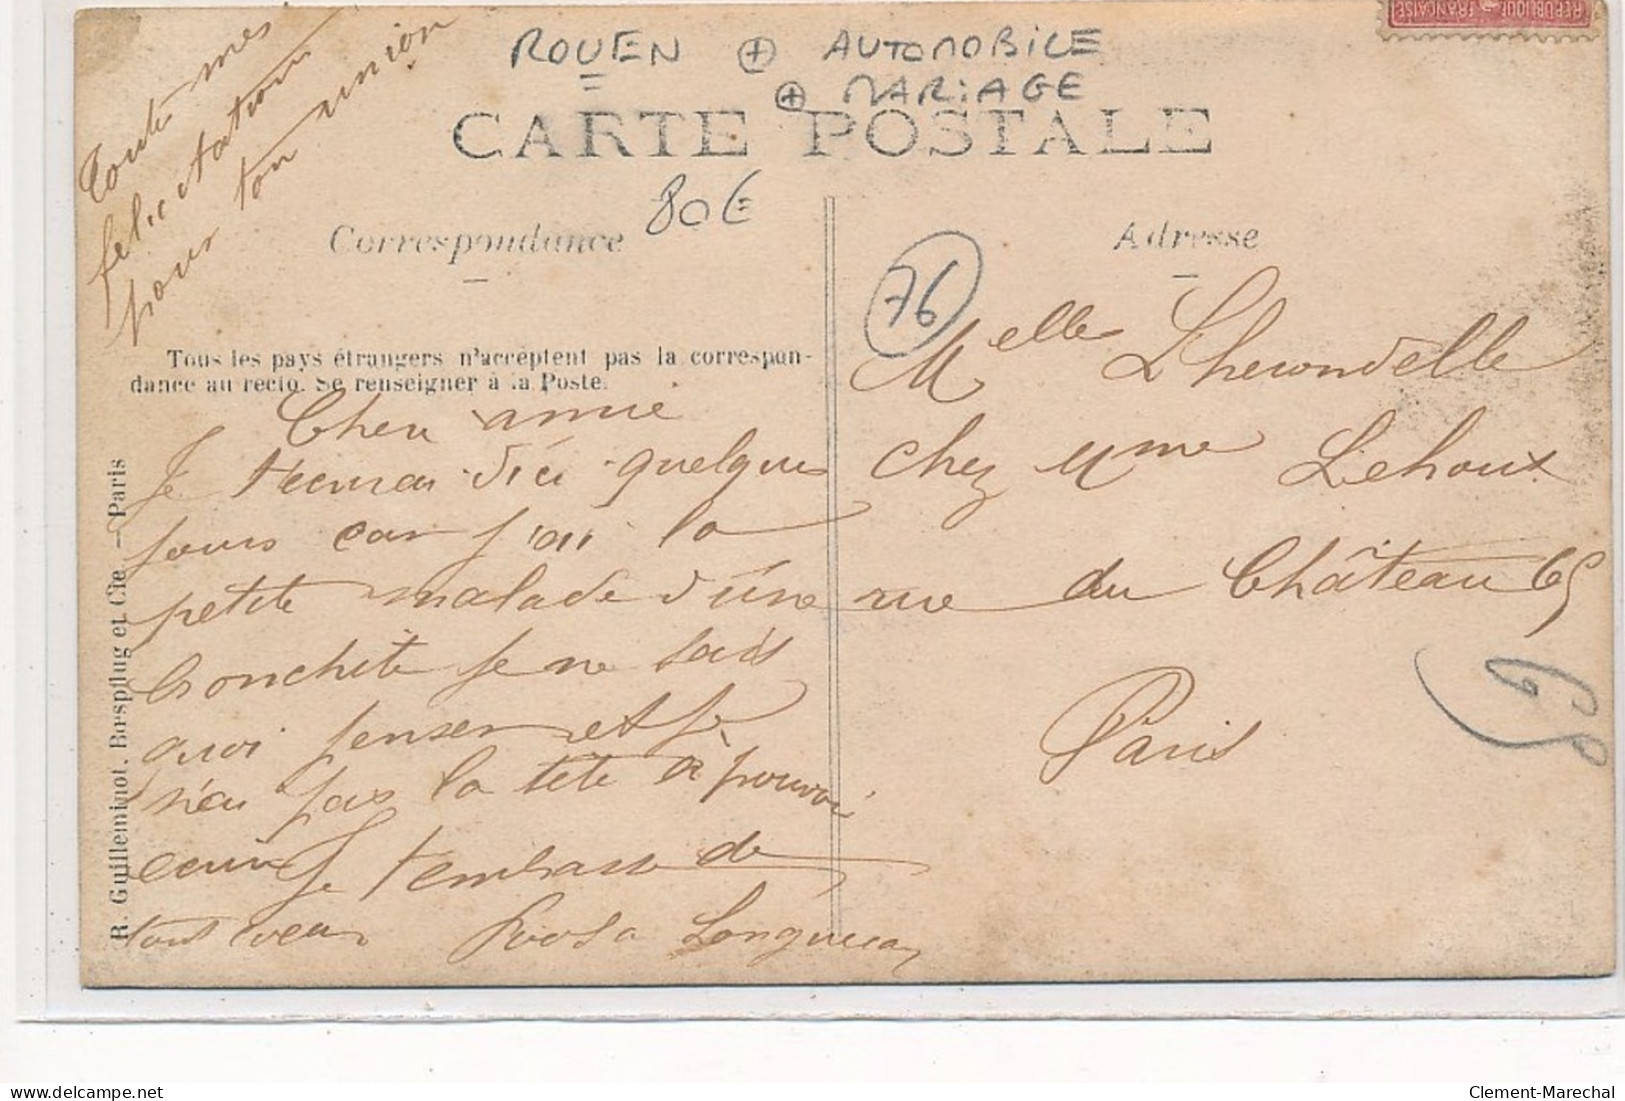 REPUBLIQUE FRANÇAISE
ROUEN + AUTOMOBILE
+ MARIAGE
CARTE POSTALE
80€
Toute mes
felicitation
pour ton union
Correspondance
Adresse
76
Tous les pays étrangers n'acceptent pas la correspon-
dance au recto. Se renseigner à la Poste.
Cher amie
Je d'ici quelque
jours car j'ai la
petite malade d'une
bronchite je ne sais
quoi penser et je
n'ai pas la tête a pouvoir
Je t'embrasse de
tout cœur Rosa
Melle Lherondelle
chez Mme Lehoux
rue du Château 69
Paris
R. Guilleminot, Bœspflug et Cie — Paris
Clement-Marechal